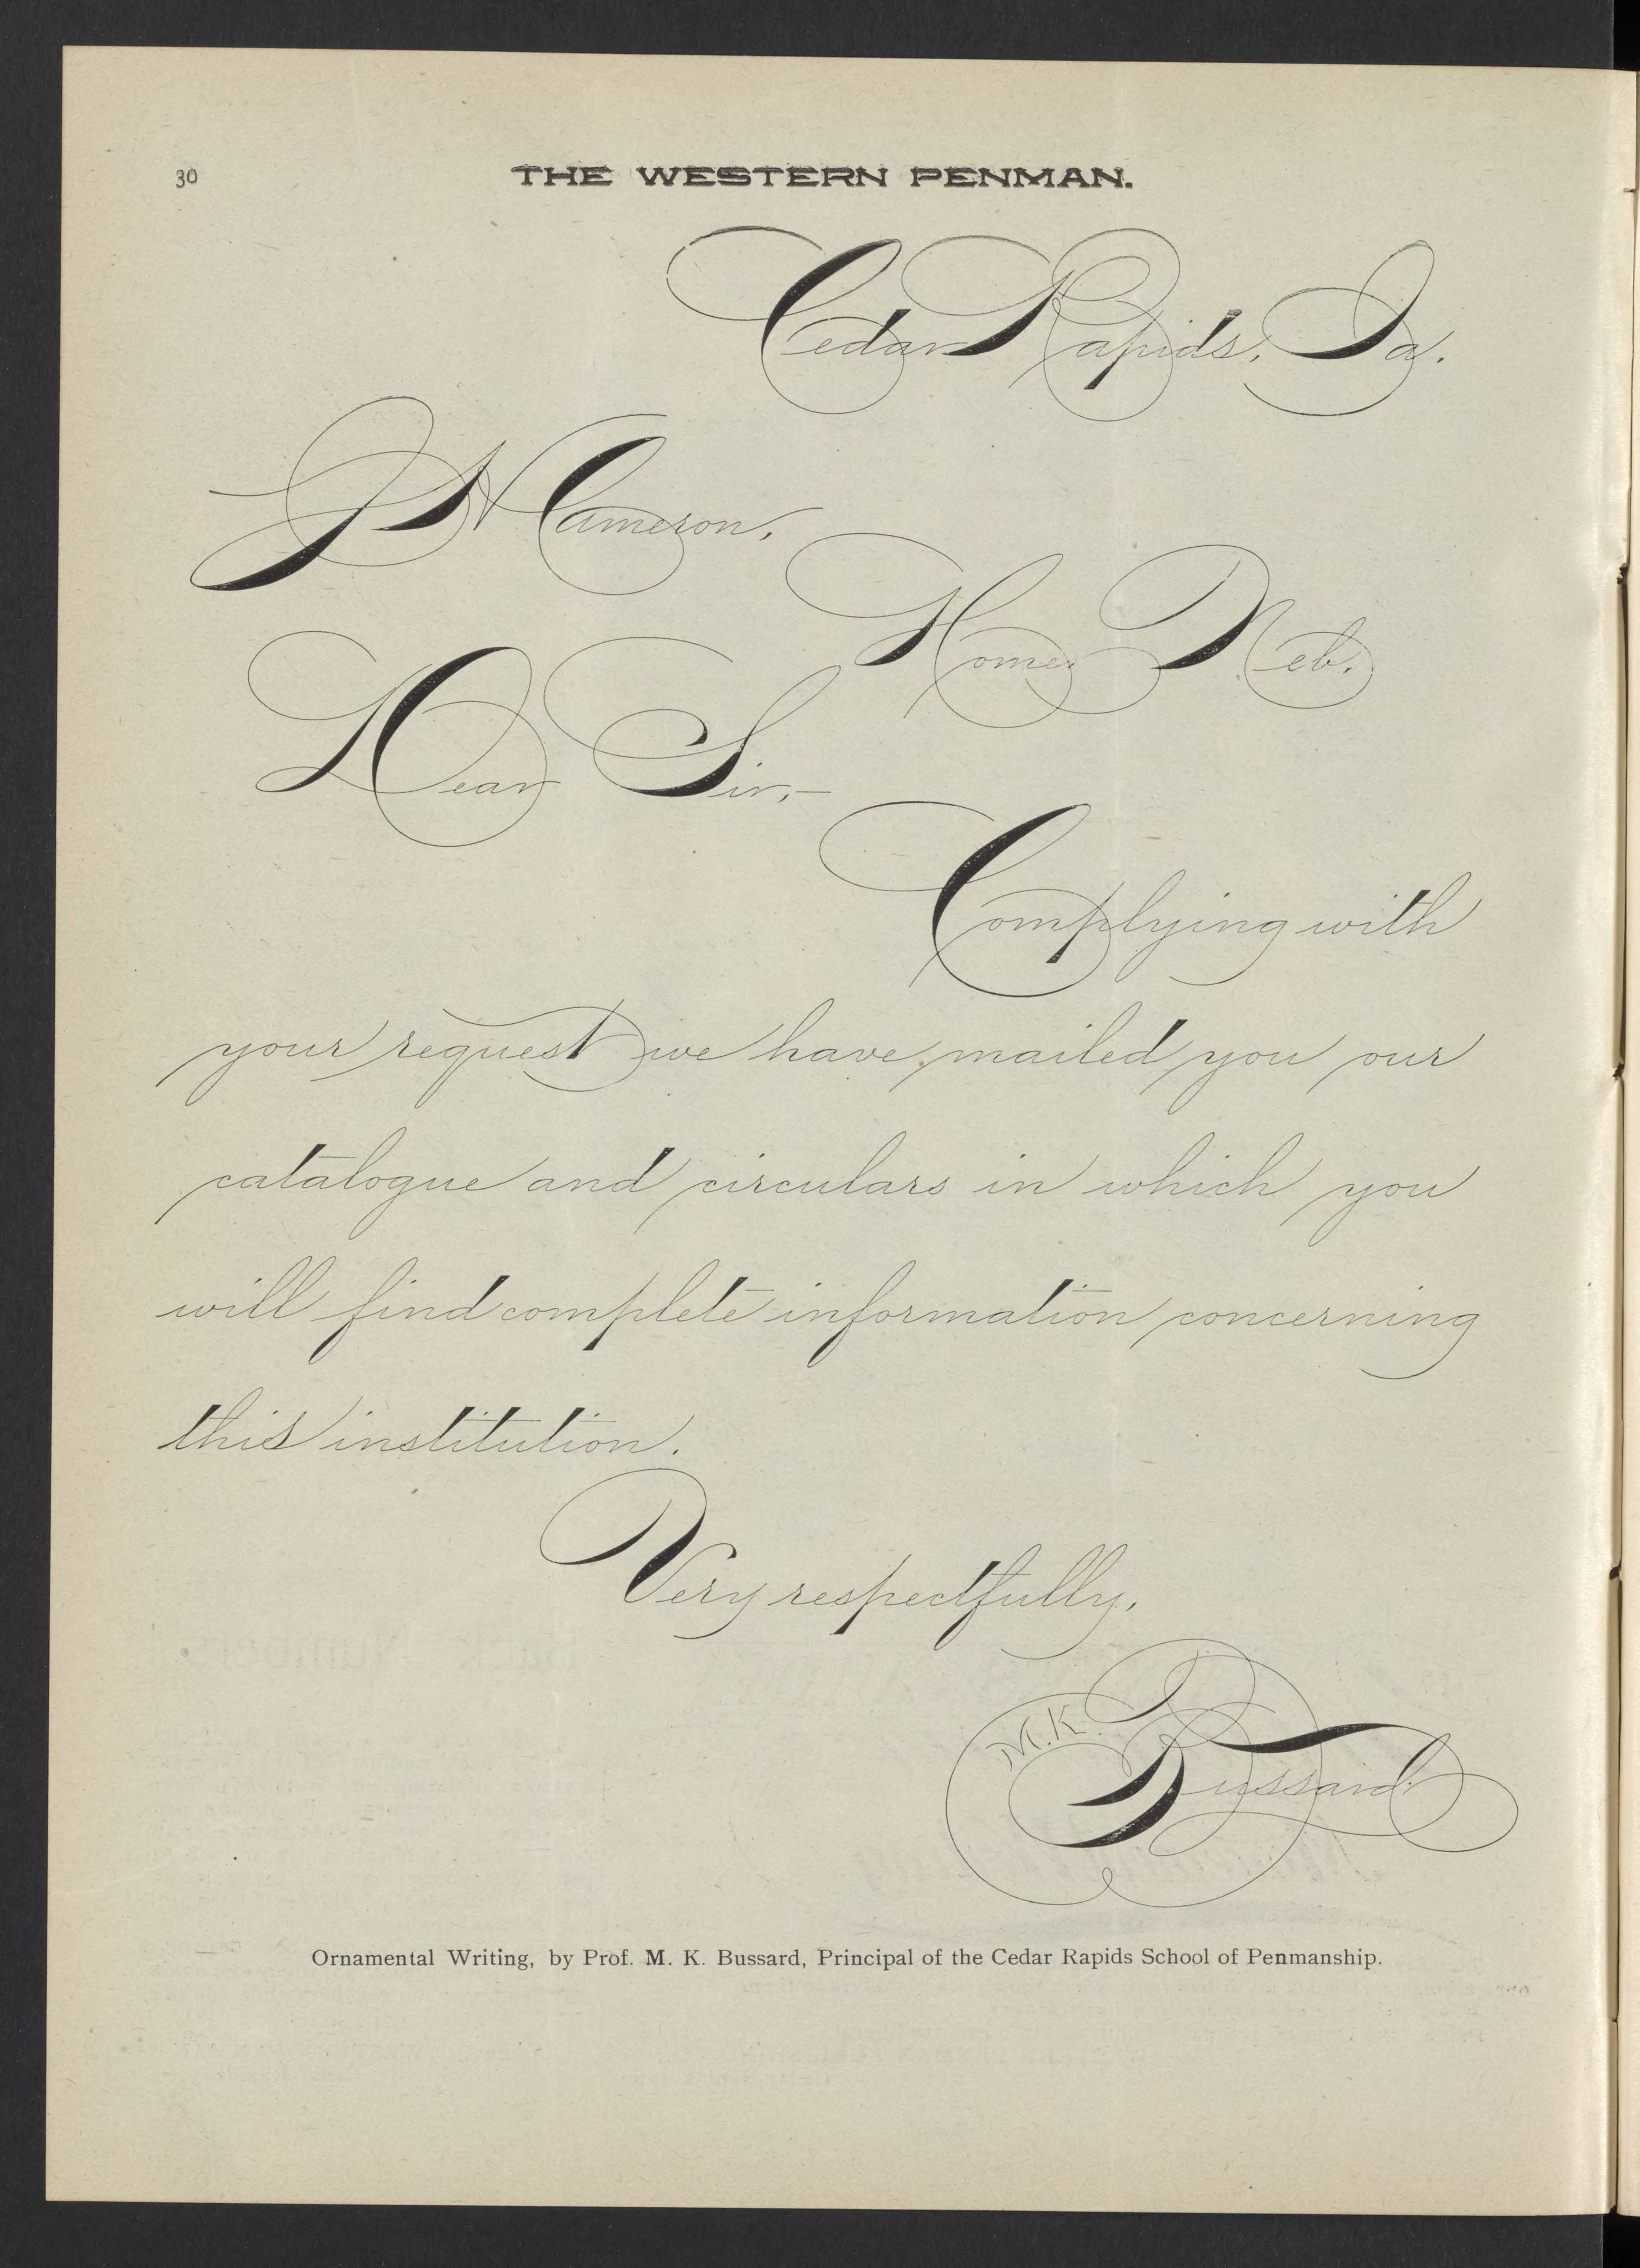 30
THE WESTERN PENMAN.
Cedar Rapids, Ia.
Cameron,
Home, Neb.
Dear Sir,—
Complying with
your request we have mailed you our
catalogue and circulars in which you
will find complete information concerning
this institution.
Very respectfully,
M. K. Bussard.
Ornamental Writing, by Prof. M. K. Bussard, Principal of the Cedar Rapids School of Penmanship.